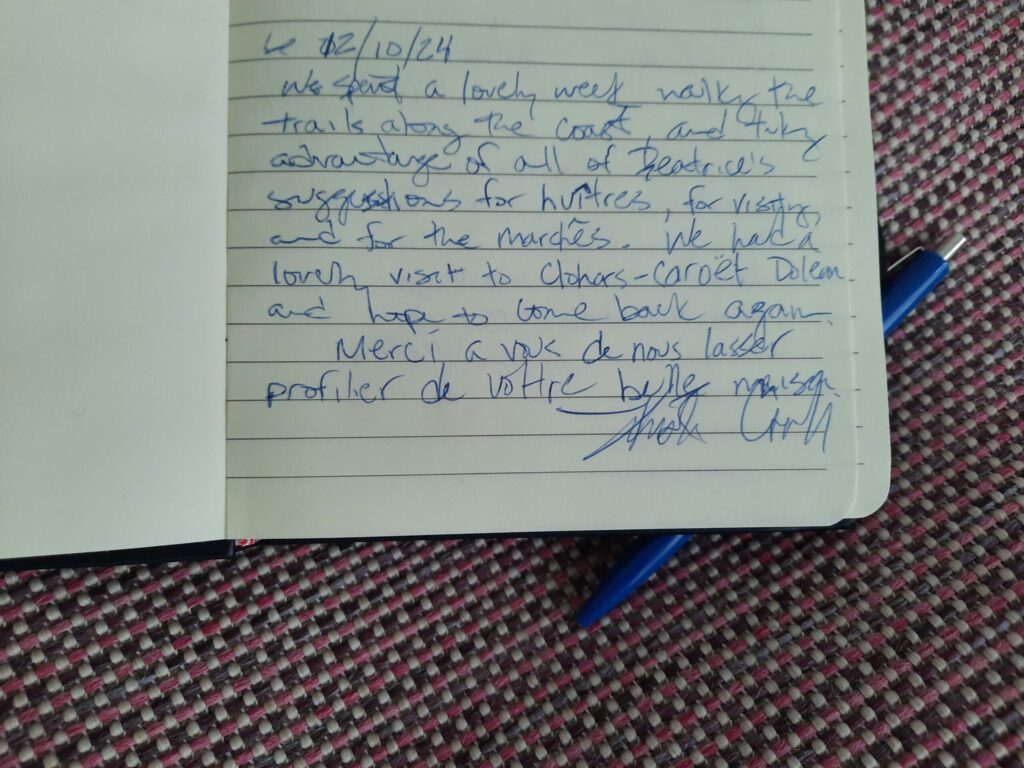 Le 12/10/24
We spent a lovely week walking the
trails along the coast, and taking
advantage of all of Beatrice's
suggestions for huîtres, for visiting,
and for the marchés. We had a
lovely visit to Clohars-Caroët
and hope to come back again.
Merci à vous de nous lasser
profiter de vottre belle maison.